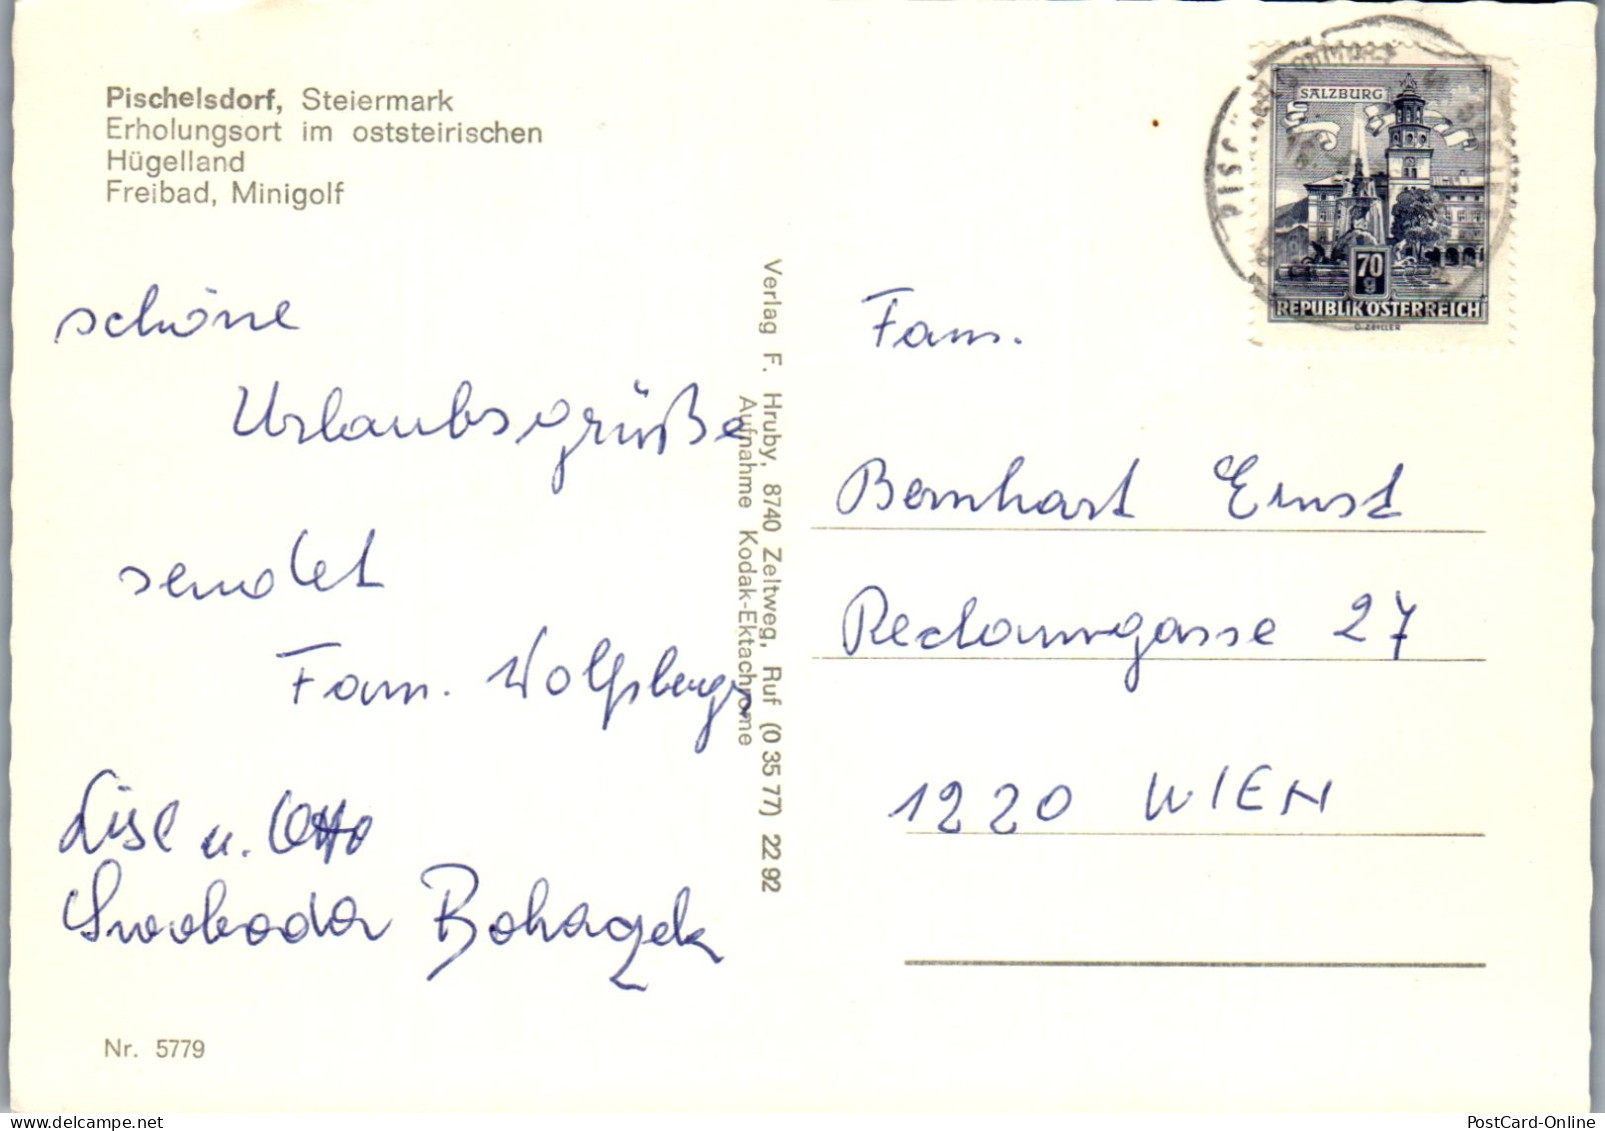 Pischelsdorf, Steiermark
Erholungsort im oststeirischen
Hügelland
Freibad, Minigolf
schöne
Urlaubsgrüße
sendet
Fam. Wolfsberger
Lisl u. Otto
Swoboda
Nr. 5779
Verlag F. Hruby, 8740 Zeltweg, Ruf (0 35 77) 22 92
Aufnahme Kodak-Ektachrome
SALZBURG
70
g
REPUBLIK ÖSTERREICH
O. ZEILLER
Fam.
Bernhart Ernst
27
1220 WIEN
PostCard-Online